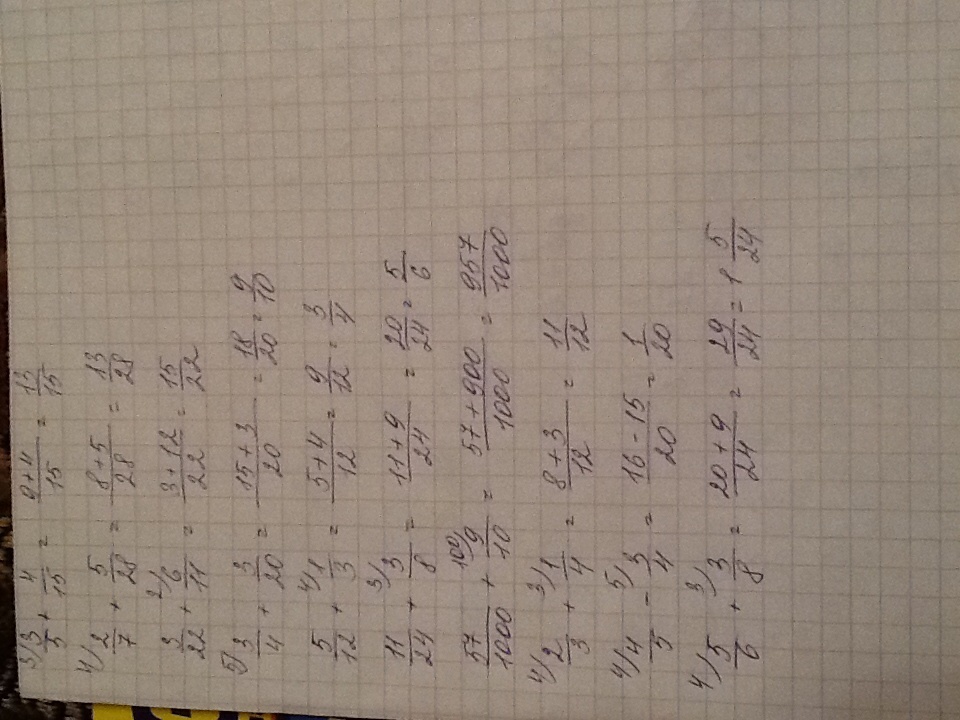 3/ 3/5 + 4/15 = (9+4)/15 = 13/15
4/ 2/7 + 5/28 = (8+5)/28 = 13/28
3/22 + 2/ 6/11 = (3+12)/22 = 15/22
5/ 3/4 + 3/20 = (15+3)/20 = 18/20 = 9/10
5/12 + 4/ 1/3 = (5+4)/12 = 9/12 = 3/4
11/24 + 3/ 3/8 = (11+9)/24 = 20/24 = 5/6
57/1000 + 100/ 9/10 = (57+900)/1000 = 957/1000
4/ 2/3 + 3/ 1/4 = (8+3)/12 = 11/12
4/ 4/5 - 5/ 3/4 = (16-15)/20 = 1/20
4/ 5/6 + 3/ 3/8 = (20+9)/24 = 29/24 = 1 5/24